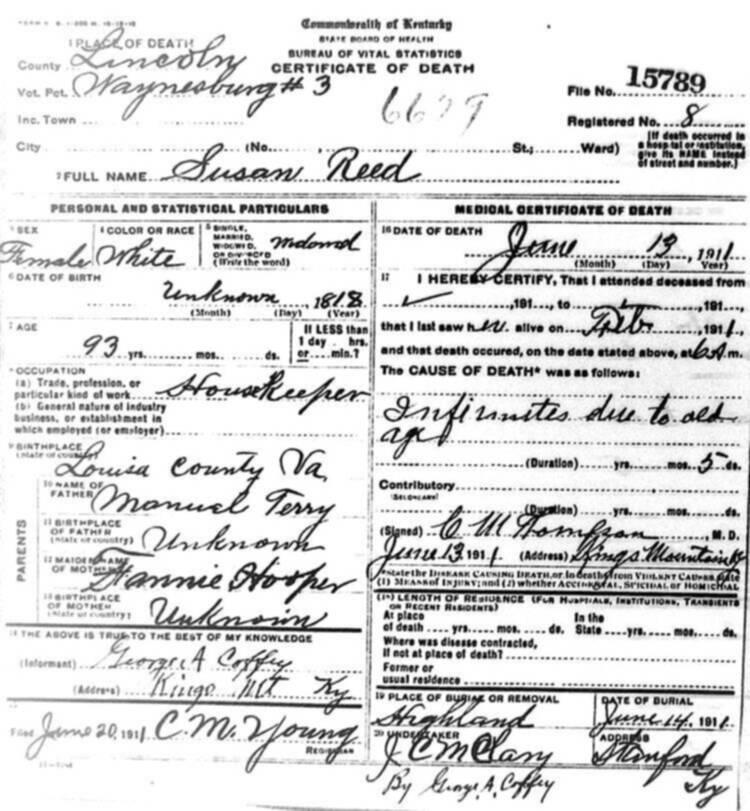 Commonwealth of Kentucky
STATE BOARD OF HEALTH
BUREAU OF VITAL STATISTICS
CERTIFICATE OF DEATH
1 PLACE OF DEATH
County Lincoln
Vot. Pct. Waynesburg # 3
6679
File No. 15789
Inc. Town
Registered No. 8
City (No. , St.; Ward)
(If death occurred in a hospital or institution, give its NAME instead of street and number.)
2 FULL NAME Susan Reed
PERSONAL AND STATISTICAL PARTICULARS
3 SEX
Female
4 COLOR OR RACE
White
5 SINGLE, MARRIED, WIDOWED, OR DIVORCED (Write the word)
Widowed
6 DATE OF BIRTH
Unknown 1818
(Month) (Day) (Year)
7 AGE
93 yrs. mos. ds.
If LESS than 1 day hrs. or min.?
8 OCCUPATION
(a) Trade, profession, or particular kind of work Housekeeper
(b) General nature of industry business, or establishment in which employed (or employer)
9 BIRTHPLACE (State or country)
Louisa County Va
PARENTS
10 NAME OF FATHER
Manuel Terry
11 BIRTHPLACE OF FATHER (State or country)
Unknown
12 MAIDEN NAME OF MOTHER
Fannie Hooper
13 BIRTHPLACE OF MOTHER (State or country)
Unknown
14 THE ABOVE IS TRUE TO THE BEST OF MY KNOWLEDGE
(Informant) George A Coffey
(Address) Kings Mt Ky
15 Filed June 20, 1911 C. M. Young
REGISTRAR
MEDICAL CERTIFICATE OF DEATH
16 DATE OF DEATH
June 13 1911
(Month) (Day) (Year)
17 I HEREBY CERTIFY, That I attended deceased from
, 191 , to , 191 ,
that I last saw her alive on Feb , 1911,
and that death occured, on the date stated above, at 6 A m.
The CAUSE OF DEATH* was as follows:
Infirmites due to old
age
(Duration) yrs. mos. 5 ds.
Contributory
(SECONDARY)
(Duration) yrs. mos. ds.
(Signed) C M Thompson, M.D.
June 13 1911 (Address) Kings Mountain Ky
*State the DISEASE CAUSING DEATH, or in deaths from VIOLENT CAUSES, state
(1) MEANS OF INJURY; and (2) whether ACCIDENTAL, SUICIDAL or HOMICIDAL
18 LENGTH OF RESIDENCE (FOR HOSPITALS, INSTITUTIONS, TRANSIENTS OR RECENT RESIDENTS)
At place of death yrs. mos. ds.
In the State yrs. mos. ds.
Where was disease contracted, if not at place of death?
Former or usual residence
19 PLACE OF BURIAL OR REMOVAL
Highland
DATE OF BURIAL
June 14, 1911
20 UNDERTAKER
J C McClary
ADDRESS
Stanford
Ky
By George A. Coffey